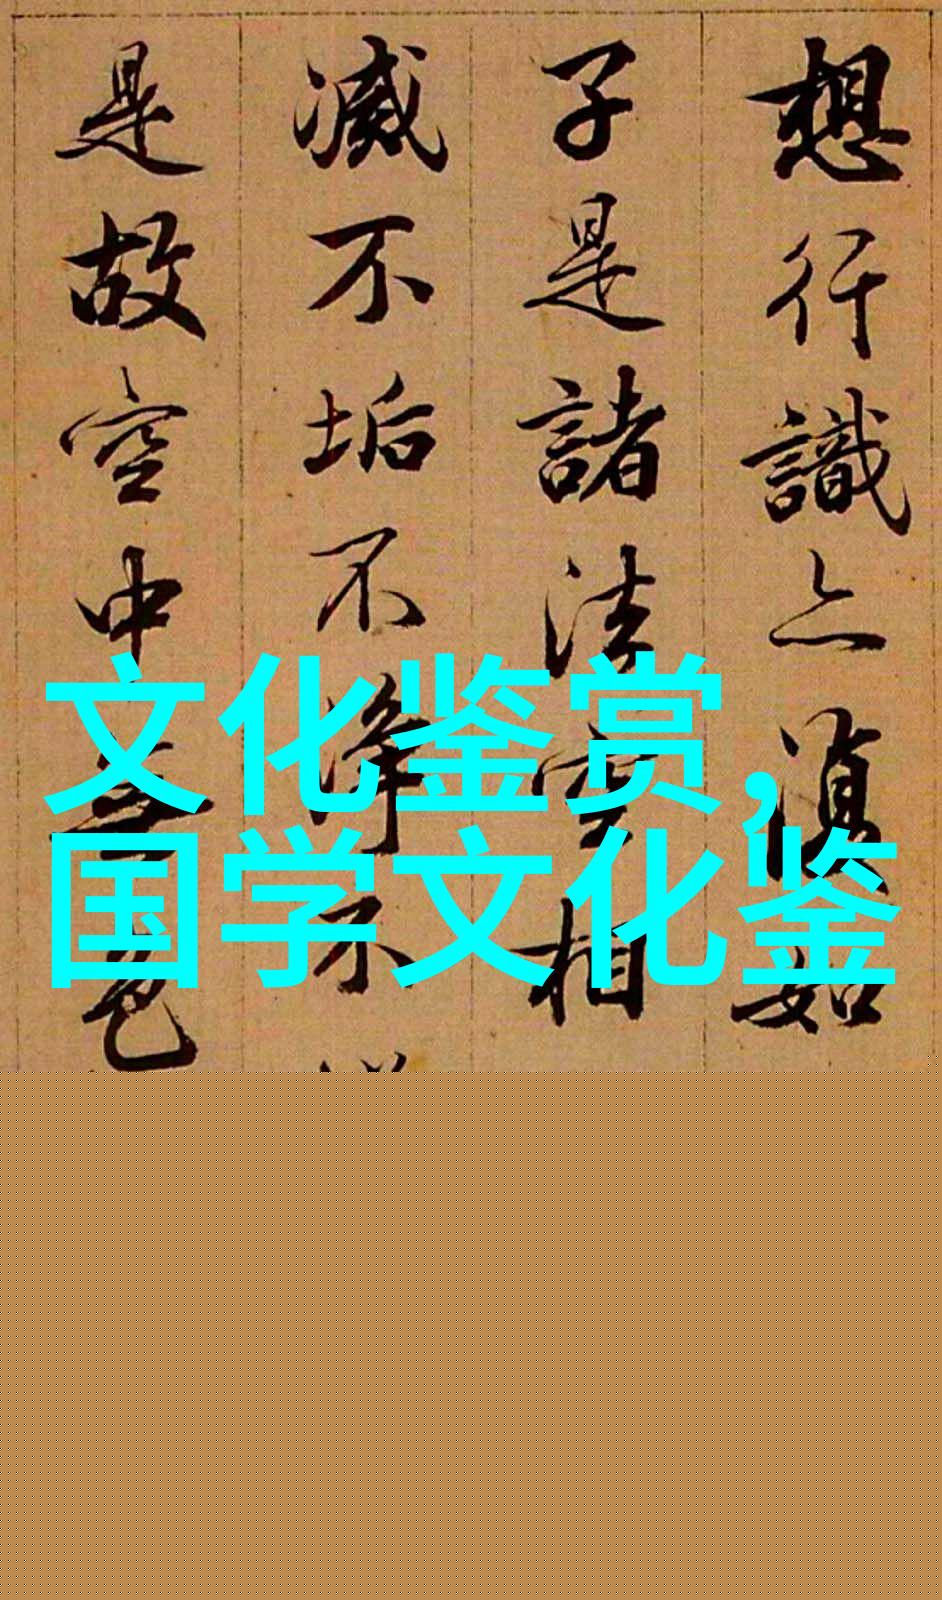 想行識亦復如
子是諸法空相
滅不垢不淨不
是故空中無色
文化鉴赏,
国学文化鉴